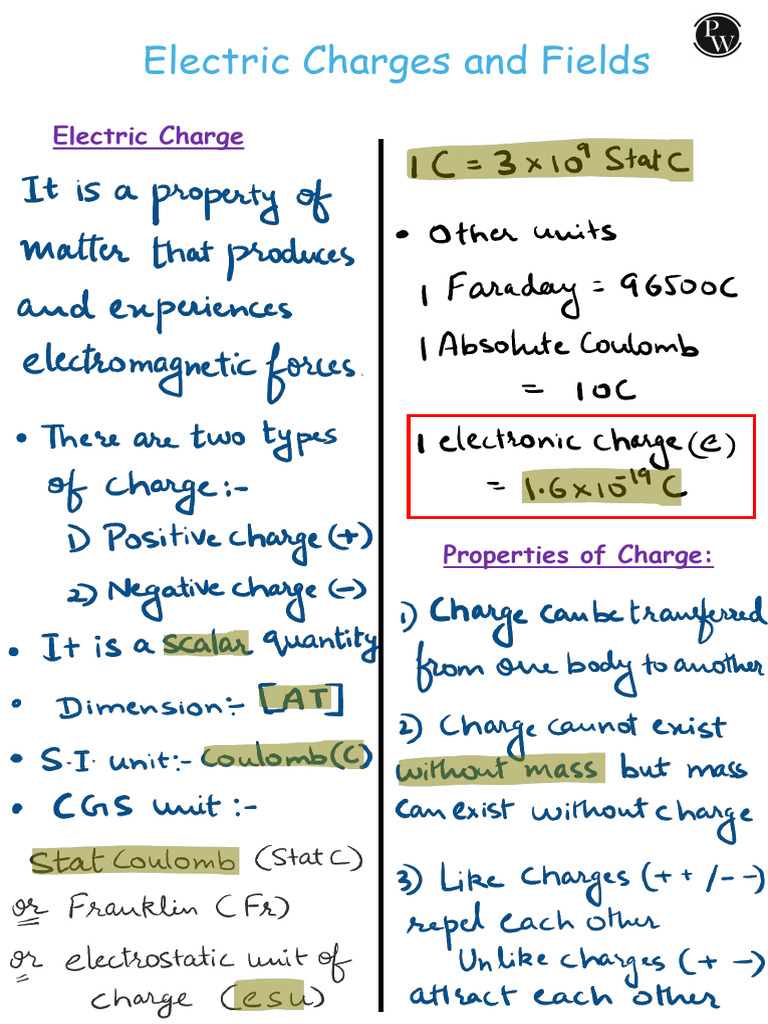 PW
Electric Charges and Fields
Electric Charge
It is a property of
matter that produces
and experiences
electromagnetic forces.
• There are two types
of charge:-
1) Positive charge (+)
2) Negative charge (-)
• It is a scalar quantity
• Dimension:- [AT]
• S.I. unit:- Coulomb(C)
• CGS unit :-
Stat Coulomb (Stat C)
or Franklin (Fr)
or electrostatic unit of
charge (esu)
1 C = 3 × 10⁹ Stat C
• Other units
1 Faraday = 96500C
1 Absolute Coulomb
= 10C
1 electronic charge (e)
= 1.6 × 10⁻¹⁹ C
Properties of Charge:
1) Charge can be transferred
from one body to another
2) Charge cannot exist
without mass but mass
can exist without charge
3) Like charges (+ + / - -)
repel each other
Unlike charges (+ -)
attract each other